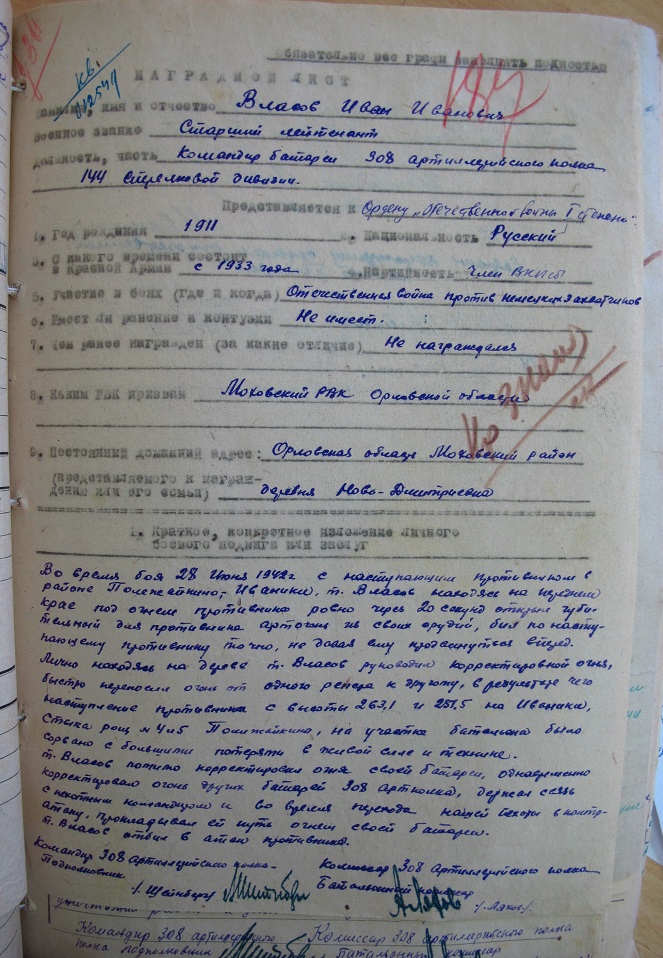 Обязательно все графы заполнять полностью
187
кв.
НАГРАДНОЙ ЛИСТ
Фамилия, имя и отчество Власов Иван Иванович
Военное звание Старший лейтенант
Должность, часть Командир батареи 308 артиллерийского полка
144 Стрелковой дивизии.
Представляется к Ордену „Отечественной войны I степени".
1. Год рождения 1911 2. Национальность Русский
3. С какого времени состоит
в Красной Армии с 1933 года 4. Партийность Член ВКП(б)
5. Участие в боях (Где и когда) Отечественная война против немецких захватчиков
6. Имеет ли ранение и контузии Не имеет.
7. Чем ранее награжден (за какие отличие) Не награждался
8. Каким РВК призван Моховский РВК Орловской области
Кр знамя
9. Постоянный домашний адрес: Орловская область Моховский район
(представляемого к награж-
дению или его семьи) деревня Ново-Дмитриевка
1. Краткое, конкретное изложение личного
боевого подвига или заслуг
Во время боя 28 июня 1942г с наступающим противником в
районе Полежайкино, Иваники, т. Власов находясь на переднем
крае под огнем противника ровно через 20 секунд открыл губи-
тельный для противника артогонь из своих орудий, бил по насту-
пающему противнику точно, не давая ему продвинуться вперед.
Лично находясь на дереве т. Власов руководил корректировкой огня,
быстро переносил огонь от одного репера к другому, в результате чего
наступление противника с высоты 263,1 и 251,5 на Иваники,
Стыка рощ №4 и 5 Полежайкино, на участке батальона было
сорвано с большими потерями в живой силе и технике.
т. Власов помимо корректировки огня своей батареи, одновременно
корректировал огонь других батарей 308 артполка, держал связь
с пехотным командиром и во время перехода нашей пехоты в контр-
атаку, прокладывал ей путь огнем своей батареи.
т. Власов отбил атаки противника.
Командир 308 Артиллерийского полка - Комиссар 308 Артиллерийского полка
Подполковник Батальонный комиссар
/. Шейнберг/
Командир 308 артиллерийского Комиссар 308 артиллерийского полка
полка подполковник Батальонный комиссар